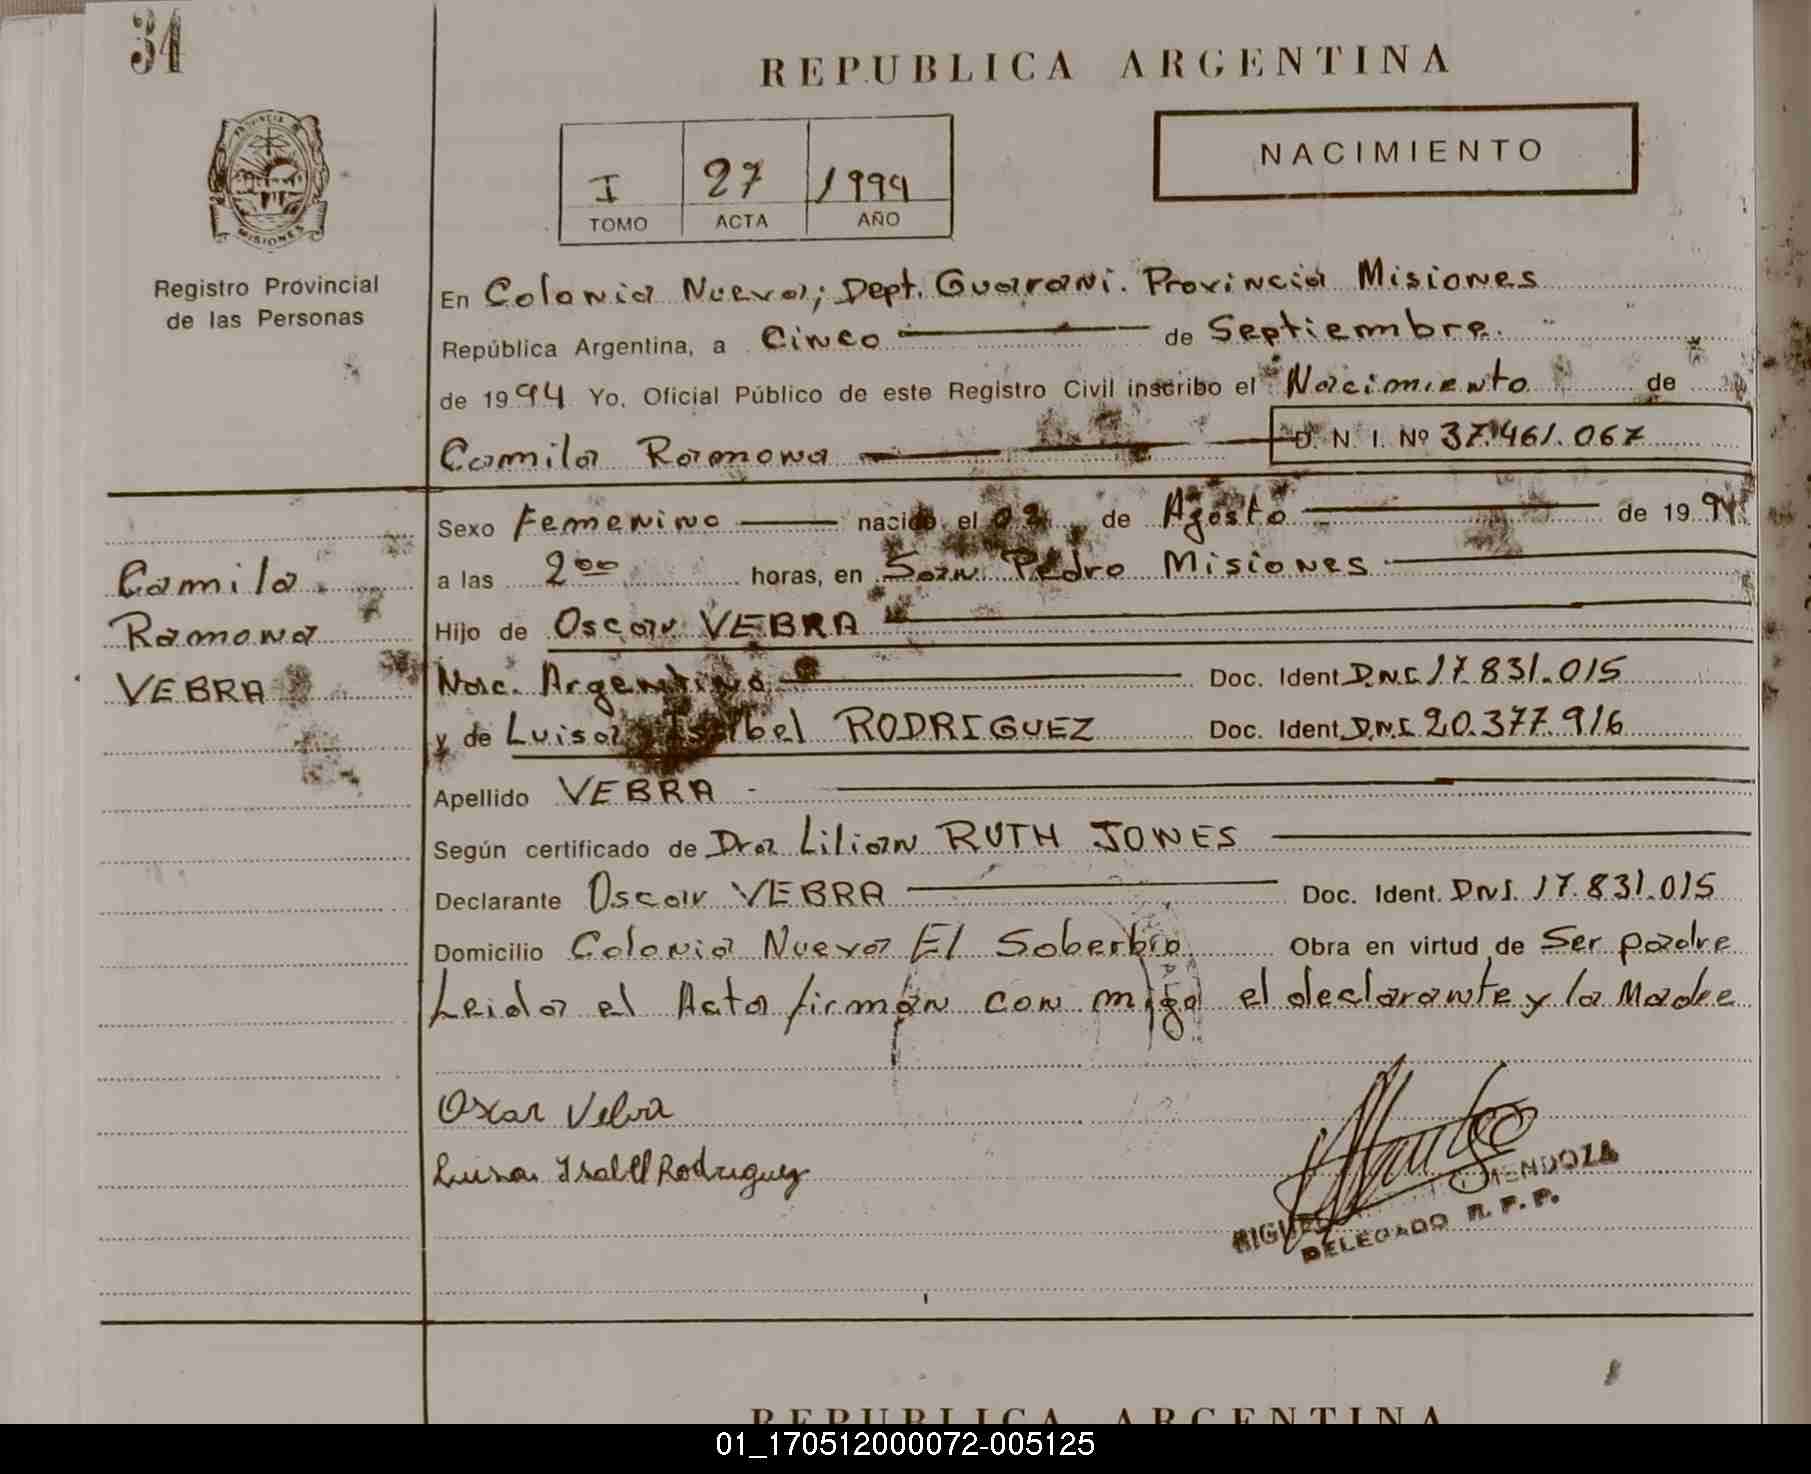 34
REPUBLICA ARGENTINA
NACIMIENTO
I 27 1994
TOMO ACTA AÑO
PROVINCIA DE
MISIONES
Registro Provincial
de las Personas
En Colonia Nueva; Dept. Guarani. Provincia Misiones
República Argentina, a Cinco de Septiembre.
de 1994 Yo, Oficial Público de este Registro Civil inscribo el Nacimiento de
Camila Ramona D. N. I. Nº 37.461.067
Sexo Femenino nacido el de Agosto de 1994
a las 2 00 horas, en San Pedro Misiones
Hijo de Oscar VEBRA
Nac. Argentina Doc. Ident. D.N.I. 17.831.015
y de Luisa Isabel RODRIGUEZ Doc. Ident. D.N.I. 20.377.916
Apellido VEBRA -
Según certificado de Dra Lilian RUTH JONES
Declarante Oscar VEBRA Doc. Ident. DNI. 17.831.015
Domicilio Colonia Nueva El Soberbio Obra en virtud de Ser padre
Leida el Acta firman con migo el declarante y la Madre
Camila
Ramona
VEBRA
Oscar Vebra
Luisa Isabel Rodriguez
MIGUEL MENDOZA
DELEGADO R. P. P.
REPUBLICA ARGENTINA
01_170512000072-005125